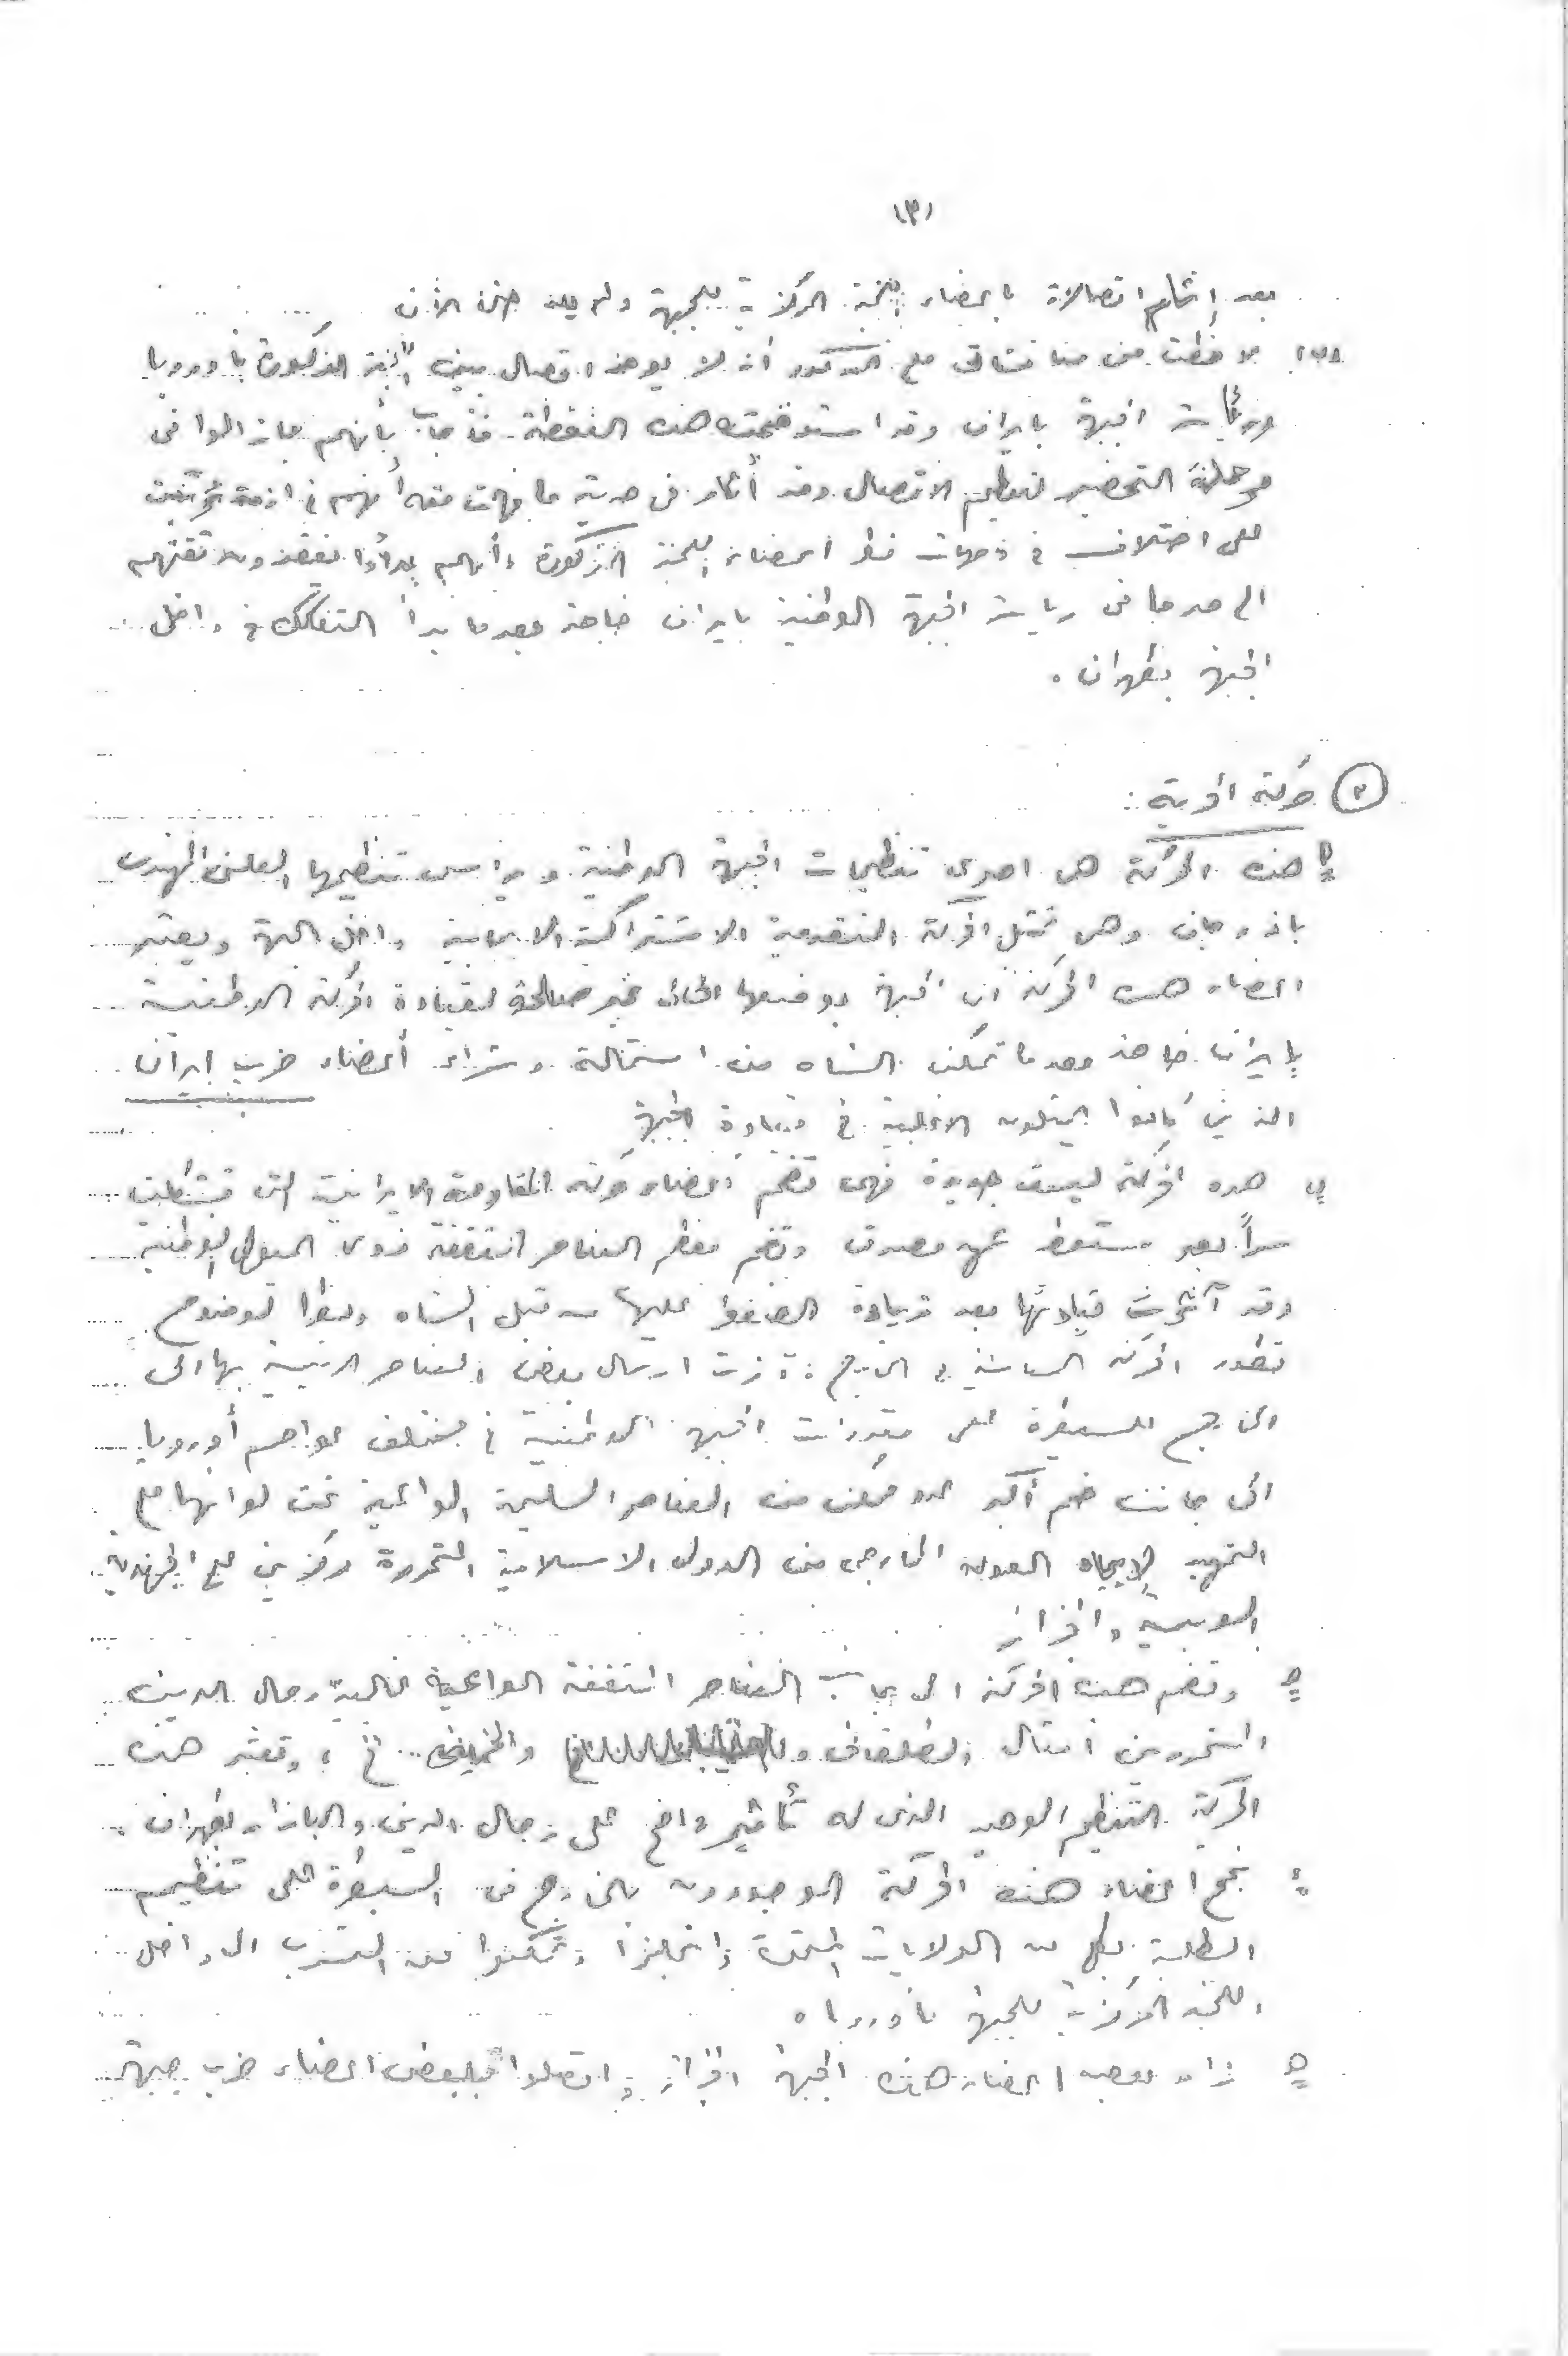 (٣)
بعد إتمام اتصالاته بأعضاء اللجنة المركزية للجبهة ولم يعد حتى الآن
(ب) لاحظت من مناقشاتى مع المذكور أنه لا يوجد اتصال بين اللجنة المذكورة بأوروبا
ورئاسة الجبهة بايران وقد استوضحته هذه النقطة فأجاب بأنهم مازالوا فى
مرحلة التحضير لتنظيم الاتصال وقد أشار فى حديثه ما فهمت منه أنهم فى ازمة
على اختلاف فى وجهات نظر اعضاء اللجنة المذكورة وأنهم بدأوا يفقدون ثقتهم
الى حد ما فى رياسة الجبهة الوطنية بايران خاصة بعد ما بدأ التفكك فى داخل
الجبهة بطهران .
(٢) حركة آزادية :
أ) هذه الحركة هى احدى تنظيمات الجبهة الوطنية ويرأس تنظيمها العلنى المهندس
بازرجان وهى تمثل الحركة التقدمية الاشتراكية الايمانية داخل الجبهة ويعتبر
اعضاء هذه الحركة أن الجبهة بوضعها الحالى غير صالحة لقيادة الحركة الوطنية
بإيران خاصة بعد ما تمكن الشاه من استمالة وشراء أعضاء حزب ايران
الذين كانوا يمثلون الاغلبية فى قيادة الجبهة
ب) هذه الحركة ليست جديدة فهى تضم أعضاء حركة المقاومة الايرانية التى تشكلت
سراً بعد سقوط عهد مصدق وتضم معظم العناصر المثقفة ذوى الميول الوطنية
وقد آثرت قيادتها بعد زيادة الضغط عليها من قبل الشاه ونظرا لوضوح
تطور الحركة السياسية فى الخارج قررت ارسال بعض العناصر الرئيسية بها الى
الخارج للسيطرة على مقدرات الجبهة الوطنية فى مختلف عواصم أوروبا
الى جانب ضم أكبر عدد ممكن من العناصر السليمة الواعية تحت لوائها مع
التمهيد لإيجاد العون الخارجى من الدول الاسلامية المتحررة مركزين على الجمهورية
العربية والجزائر
ج) وتضم هذه الحركة الى جانب العناصر المثقفة الواعية غالبية رجال الدين
المتحررين أمثال الطلقانى و والخمينى .. الخ ، وتعتبر هذه
الحركة التنظيم الوحيد الذى له تأثير واضح على رجال الدين والبازار بطهران .
د) نجح اعضاء هذه الحركة الموجودون بالخارج فى السيطرة على تنظيم
الطلبة بكل من الولايات المتحدة وانجلترا وتمكنوا من التسرب الى داخل
اللجنة المركزية للجبهة بأوروبا .
ه) زار بعض اعضاء هذه الجبهة الجزائر واتصلوا ببعض اعضاء حزب جبهة